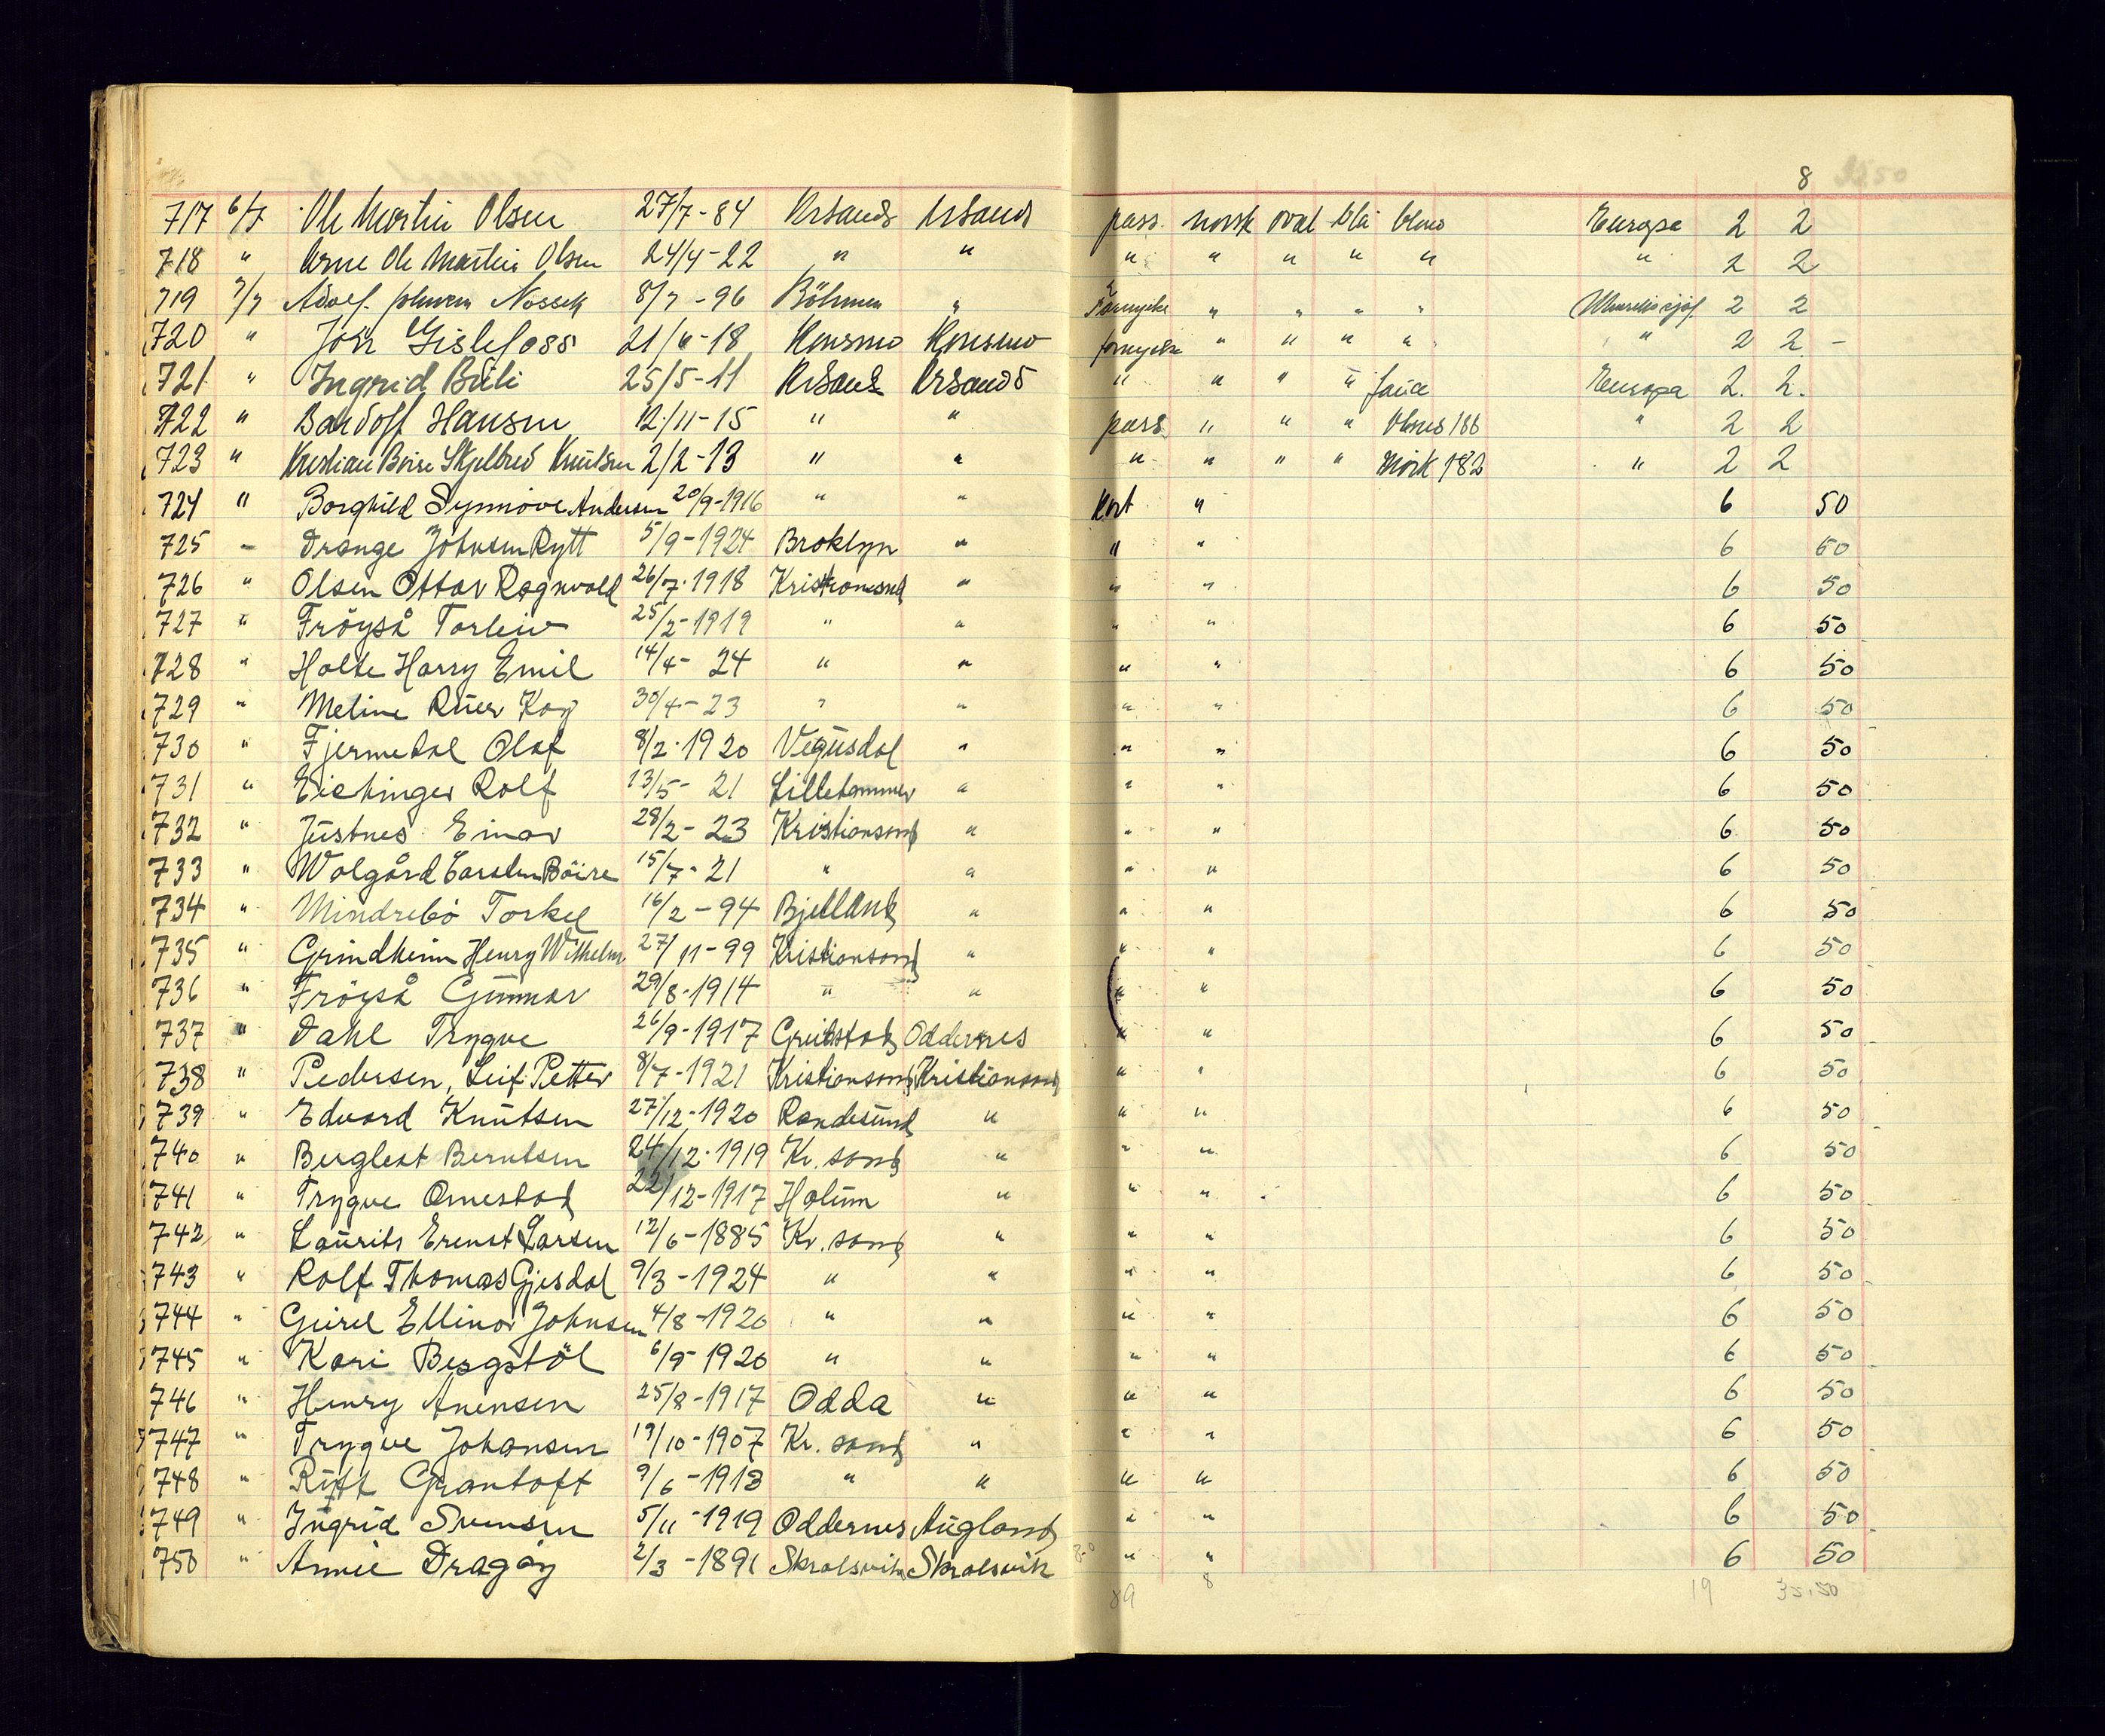 8
717 6/7 Ole Martin Olsen 27/7-84 Krsand Krsand pass norsk oval blå blond Europa 2 2
718 " Arne Ole Martin Olsen 24/4-22 " " " " " " " " 2 2
719 7/7 Adolf Johann Nossek 8/7-96 Böhmen " Fornyelse " " " " 2 2
720 " Jörr Gislefoss 21/6-18 Konsmo Konsmo fornyelse " " " " " 2 2 -
721 " Ingrid Büli 25/5-11 Krsand Krsand " " " " Europa 2. 2.
722 " Bardolf Hansen 12/11-15 " " pass " " " 166 " 2 2
723 " Kristian Boise Skjelbred Knutsen 2/2-13 " " " " " " mörk 182 " 2 2
724 " Borghild Synnöve Andersen 20/9-1916 " " Kort " 6 50
725 - Drange Johnsen Rytt 5/9-1924 Broklyn " " " 6 50
726 " Olsen Ottar Ragnvald 26/7-1918 Kristiansand " " " 6 50
727 " Fröyså Torleiv 25/2-1919 " " " " 6 50
728 " Holte Harry Emil 14/4-24 " " " " 6 50
729 " Meline Rüer Kay 30/4-23 " " " " 6 50
730 " Fjermedal Olaf 8/2-1920 Vegusdal " " " 6 50
731 " Eichinger Rolf 13/5-21 Lillehammer " " " 6 50
732 " Justnes Einar 28/2-23 Kristiansand " " " 6 50
733 " Wolgård Carsten Böire 15/7-21 " " " " 6 50
734 " Mindrebö Torkel 16/2-94 Bjelland " " " 6 50
735 " Grindheim Henry Wilhelm 27/11-99 Kristiansand " " " 6 50
736 " Fröyså Gunnar 29/8-1914 " " " " 6 50
737 " Dahl Trygve 26/9-1917 Grimstad Oddernes " " 6 50
738 " Pedersen, Leif Petter 8/7-1921 Kristiansand Kristiansand " " 6 50
739 " Edvard Knutsen 27/12-1920 Randesund " " " 6 50
740 " Berglest Berntsen 24/12-1919 Kr. sand " " " 6 50
741 " Trygve Ornestad 22/12-1917 Holum " " " 6 50
742 " Laurits Ernst Larsen 12/6-1885 Kr. sand " " " 6 50
743 " Rolf Thomas Gjesdal 9/3-1924 " " " " 6 50
744 " Geirel Ellinor Johnsen 4/8-1920 " " " " 6 50
745 " Kari Bergstöl 6/9-1920 " " " " 6 50
746 " Henry Anensen 25/8-1917 Odda " " " 6 50
747 " Trygve Johansen 19/10-1907 Kr. sand " " " 6 50
748 " Rutt Grantoft 9/6-1913 " " " " 6 50
749 " Ingrid Svensen 5/11-1919 Oddernes Augland " " 6 50
750 " Annie Dragöy 2/3-1891 Skralsvik Skralsvik " " 6 50
89 8 19 35.50